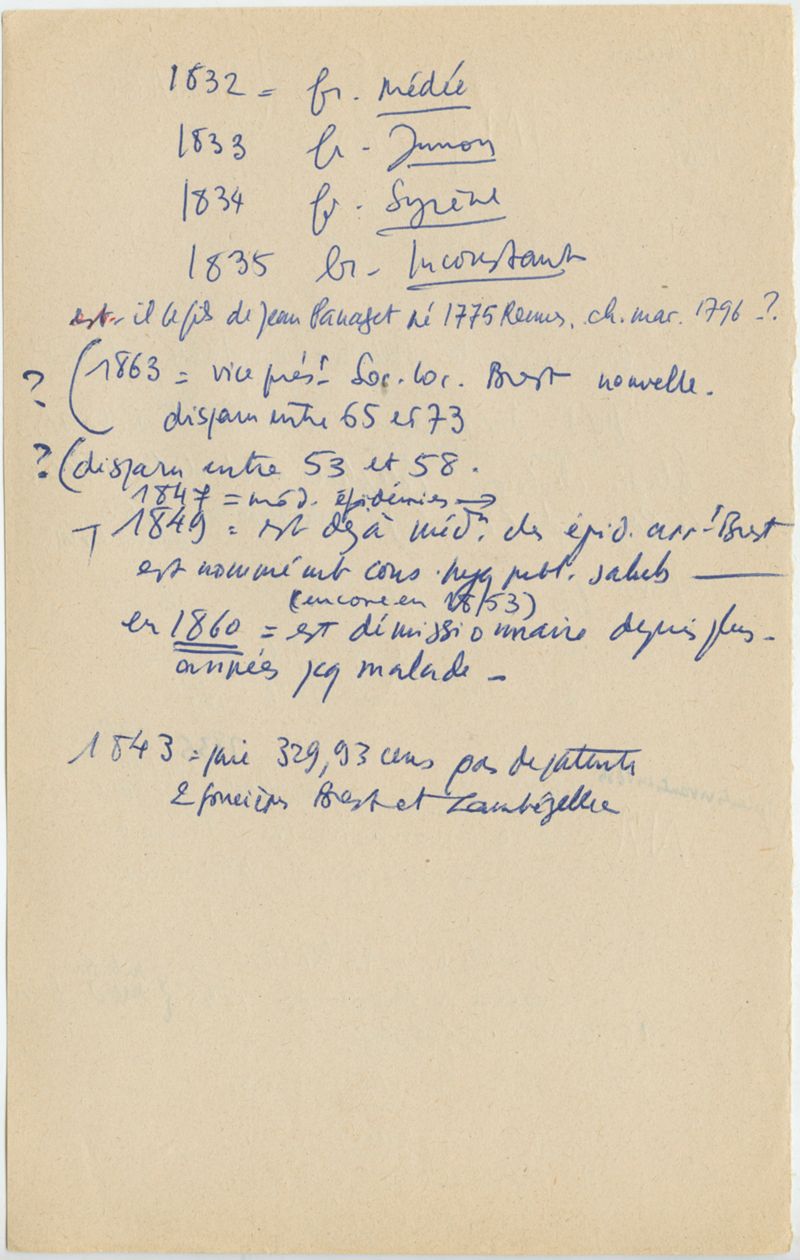 1832 = fr. Médée
1833 fr - Junon
1834 fr - Syrène
1835 br - Inconstant
est-il le fils de Jean Panaget né 1775 Rennes. ch. mar. 1796 - ?
? ( 1863 = vice prést Soc. loc. Brest nouvelle.
disparu entre 65 et 73
? ( disparu entre 53 et 58.
1847 = méd. épidémies →
1849 = est déjà médn des épid. arrt Brest
est nommé mb cons. hyg publ. salub —
(encore en 1853)
en 1860 = est démissionnaire depuis plus.
années pcq malade -
1843 = paie 329,93 cens pas de patente
2 foncières Brest et Lambézellec